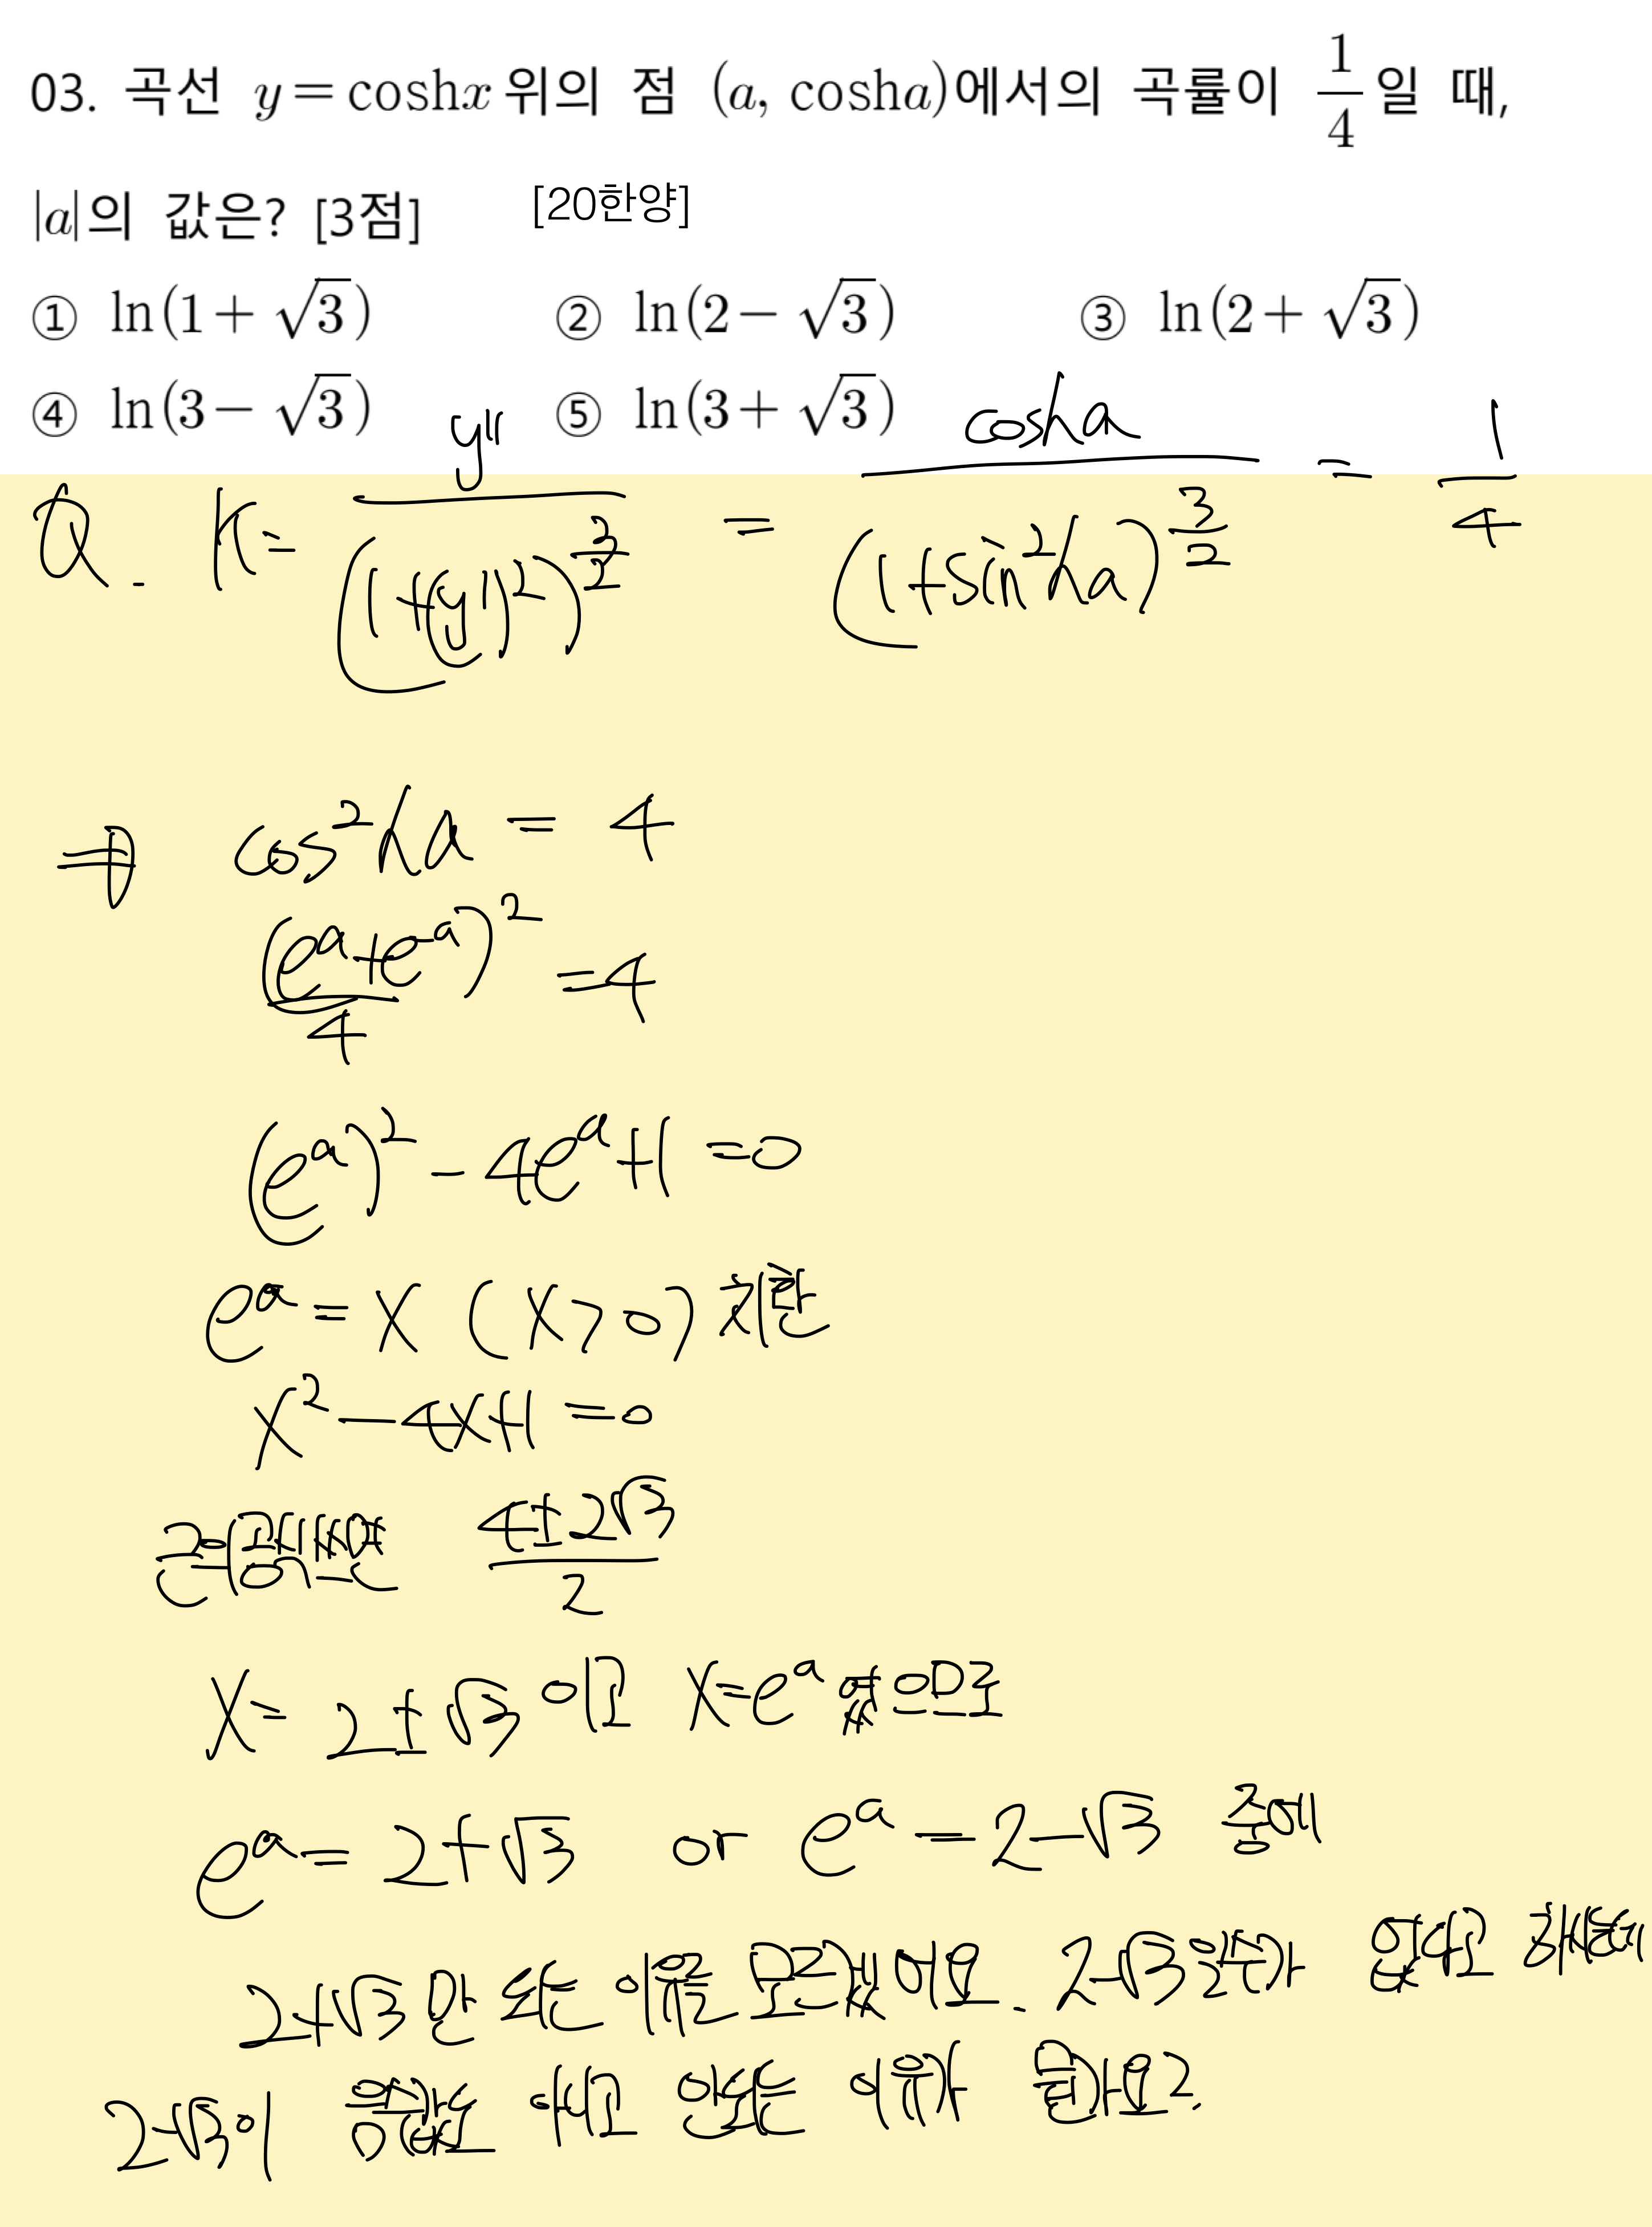 03. 곡선 y=coshx 위의 점 (a, cosha)에서의 곡률이 1/4일 때,
|a|의 값은? [3점] [20한양]
① ln(1+√3) ② ln(2-√3) ③ ln(2+√3)
④ ln(3-√3) ⑤ ln(3+√3)
Q. K = y''/(1+(y')²)^(3/2) = cosha/(1+sin²ha)^(3/2) = 1/4
⇒ cos²ha = 4
(e^a+e^-a)²/4 = 4
(e^a)² - 4e^a + 1 = 0
e^a = X (X>0) 치환
X² - 4X + 1 = 0
근의공식쓰면 (4±2√3)/2
X = 2±√3 이고 X=e^a 였으므로
e^a = 2+√3 or e^a = 2-√3 중에
2+√3만 되는 이유를 모르겠어요. 2-√3은 수가
2-√3이 음수도 아니고 안되는 이유가 뭔가요?